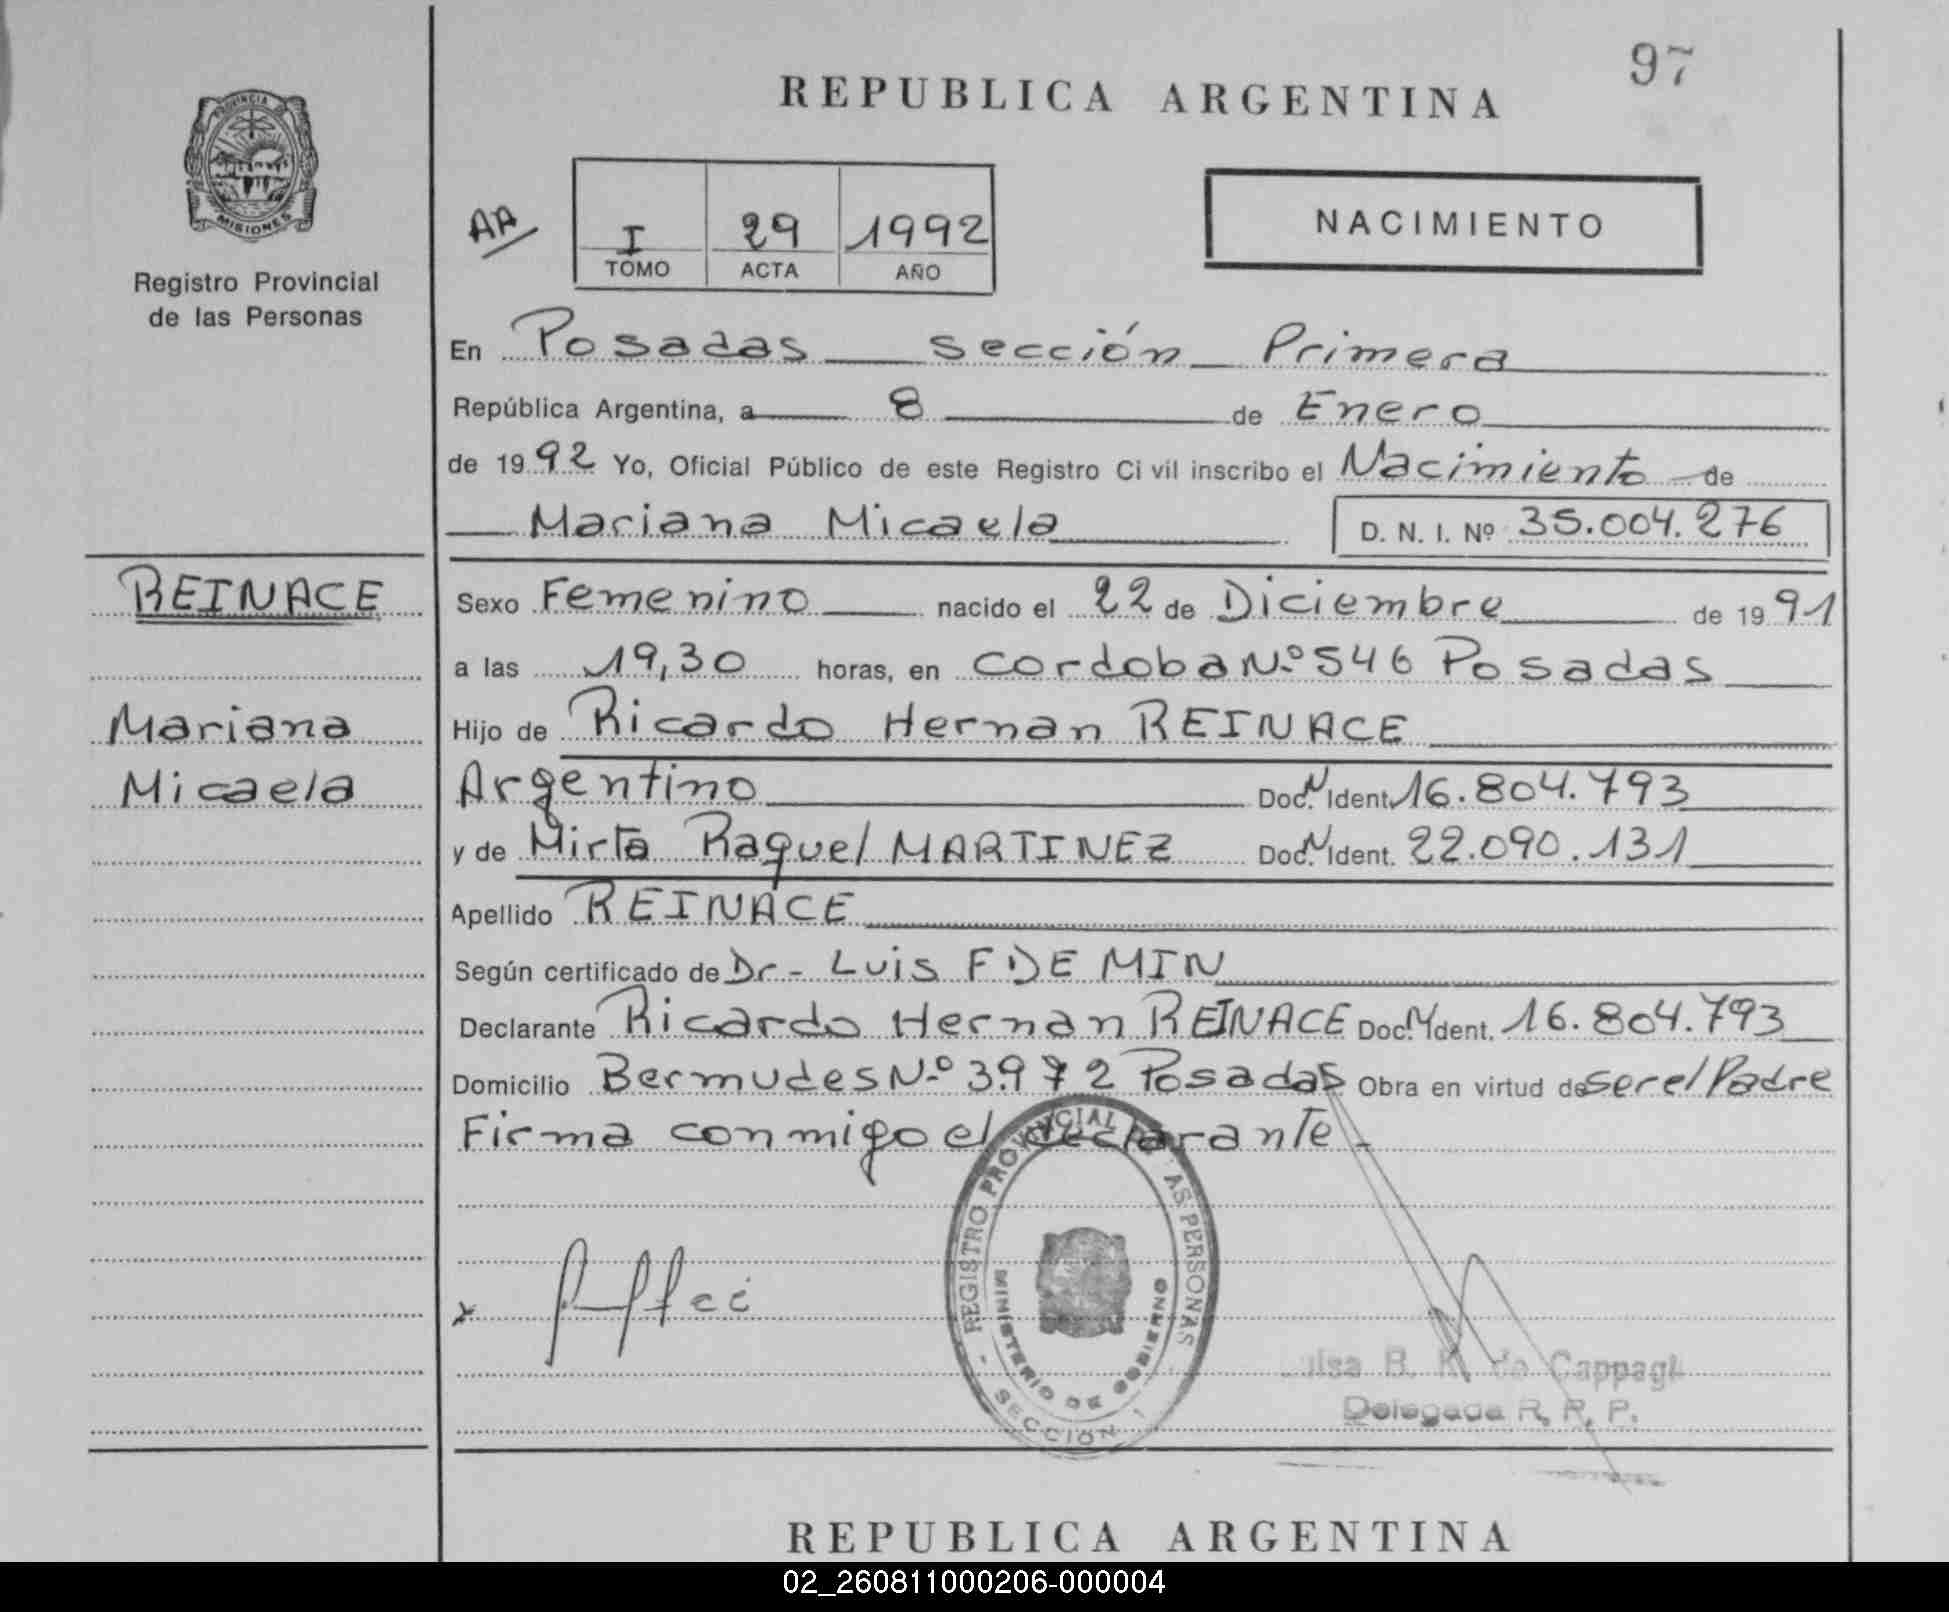 97
REPUBLICA ARGENTINA
PROVINCIA DE
MISIONES
Registro Provincial
de las Personas
AA
I 29 1992
TOMO ACTA AÑO
NACIMIENTO
En Posadas sección Primera
República Argentina, a 8 de Enero
de 1992 Yo, Oficial Público de este Registro Ci vil inscribo el Nacimiento de
Mariana Micaela D. N. I. Nº 35.004.276
REINACE
Mariana
Micaela
Sexo Femenino nacido el 22 de Diciembre de 1991
a las 19,30 horas, en Cordoba Nº 546 Posadas
Hijo de Ricardo Hernan REINACE
Argentino Doc. N Ident. 16.804.793
y de Mirta Raquel MARTINEZ Doc. N Ident. 22.090.131
Apellido REINACE
Según certificado de Dr- Luis F DE MIN
Declarante Ricardo Hernan REINACE Doc. N Ident. 16.804.793
Domicilio Bermudes Nº 3972 Posadas Obra en virtud de ser el Padre
Firma conmigo el declarante-
REGISTRO PROVINCIAL AS PERSONAS
MINISTERIO DE GOBIERNO
- SECCION 1
x
B. K. de
Delegada R. R. P.
REPUBLICA ARGENTINA
02_260811000206-000004